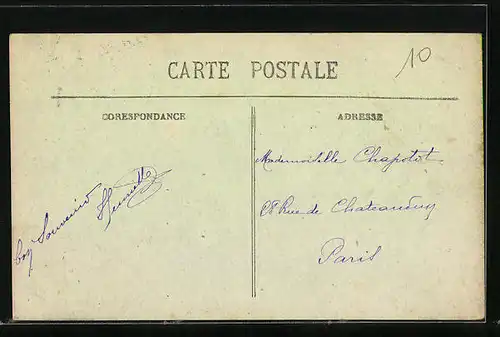 10
CARTE POSTALE
CORESPONDANCE
ADRESSE
Mademoiselle Chapotot
Rue de Chateaudun
Paris
Souvenir
Henriette